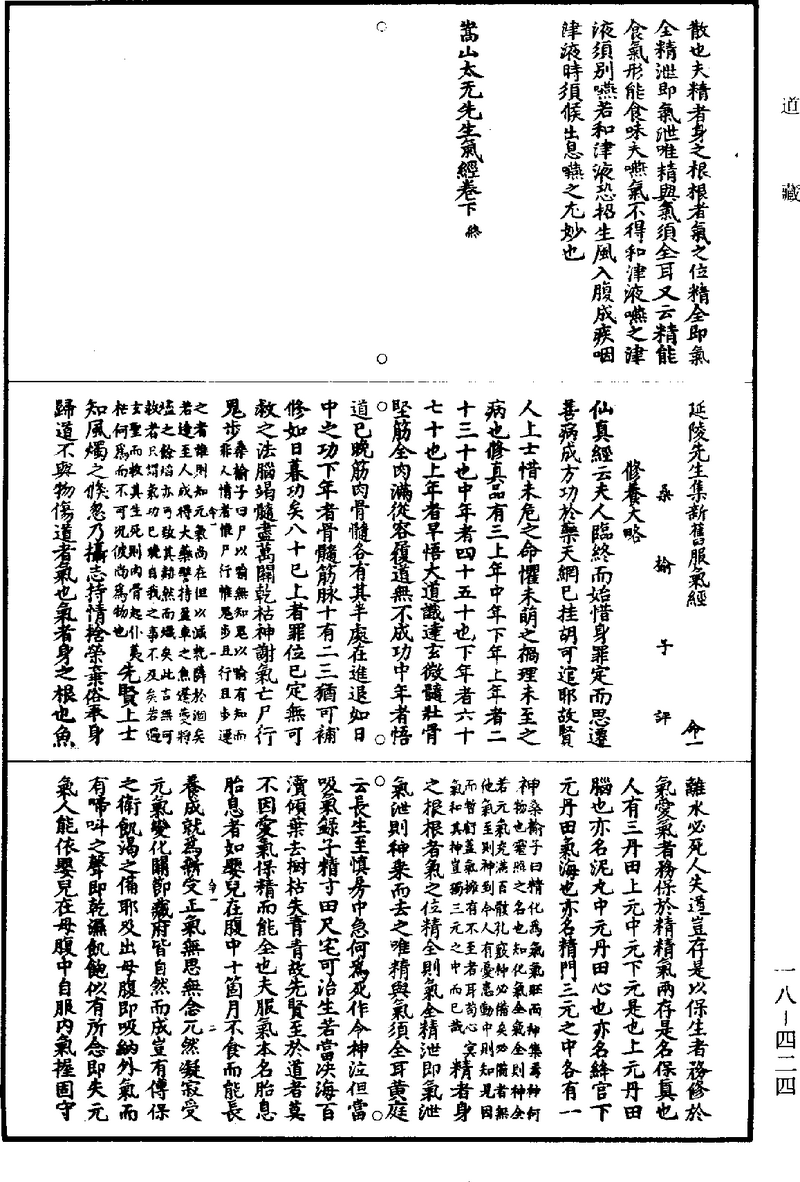 道藏
散也夫精者身之根根者氣之位精全即氣
全精泄即氣泄唯精與氣須全耳又云精能
食氣形能食味夫嚥氣不得和津液嚥之津
液須別嚥若和津液恐招生風入腹成疾咽
津液時須候出息嚥之尤妙也
嵩山太无先生氣經卷下 終
延陵先生集新舊服氣經 命一
桑榆子評
修養大略
仙真經云夫人臨終而始惜身罪定而思遷
善病成方功於藥天網已挂胡可逭耶故賢
人上士惜未危之命懼未萌之禍理未至之
病也修真品有三上年中年下年上年者二
十三十也中年者四十五十也下年者六十
七十也上年者早悟大道識達玄微髓壯骨
堅筋全肉滿從容復道無不成功中年者悟
道已晚筋肉骨髓各有其半處在進退如日
中之功下年者骨髓筋脉十有二三猶可補
修如日暮功矣八十已上者罪位已定無可
救之法腦竭髓盡萬關乾枯神謝氣亡尸行
鬼步桑榆子曰尸以喻無知鬼以喻有知而
非人情者惟尸行惟鬼步且行且步運
之者誰則知元氣尚在但以減耗隣於涸矣
若達至人或得大藥譬持盈車之魚還受將
燼之餘焰亦可致其赫然而熾矣此言無可
救者只謂氣功已晚自我之事不及矣若遇
玄聖而救其生死則肉骨起仆莫
往何為而不可況彼尚為物也先賢上士
知風燭之倐忽乃攝志持情捨榮棄俗奉身
歸道不與物傷道者氣也氣者身之根也魚
離水必死人失道豈存是以保生者務修於
氣愛氣者務保於精精氣兩存是名保真也
人有三丹田上元中元下元是也上元丹田
腦也亦名泥丸中元丹田心也亦名絳宮下
元丹田氣海也亦名精門三元之中各有一
神桑榆子曰精化為氣氣旺而神集焉神何
物也靈照之名也知化氣全氣全則神全
若元氣充滿百骸孔竅神必備矣必備者無
他氣至則神到令人有憂恚動中則知是因
而暫釘蓋氣擁有不至者耳苟心冥
氣和其神豈獨三元之中而已哉精者身
之根根者氣之位精全則氣全精泄即氣泄
氣泄則神乘而去之唯精與氣須全耳黃庭
云長生至慎房中急何為死作令神泣但當
吸氣錄子精寸田尺宅可治生若當決海百
瀆傾葉去樹枯失青青故先賢至於道者莫
不因愛氣保精而能全也夫服氣本名胎息
胎息者如嬰兒在腹中十箇月不食而能長
養成就為新受正氣無思無念兀然凝寂受
元氣變化關節臟府皆自然而成豈有傳保
之衛飢渴之備耶及出母腹即吸納外氣而
有啼叫之聲即乾濕飢飽似有所念即失元
氣人能依嬰兒在母腹中自服內氣握固守
一八-四二四